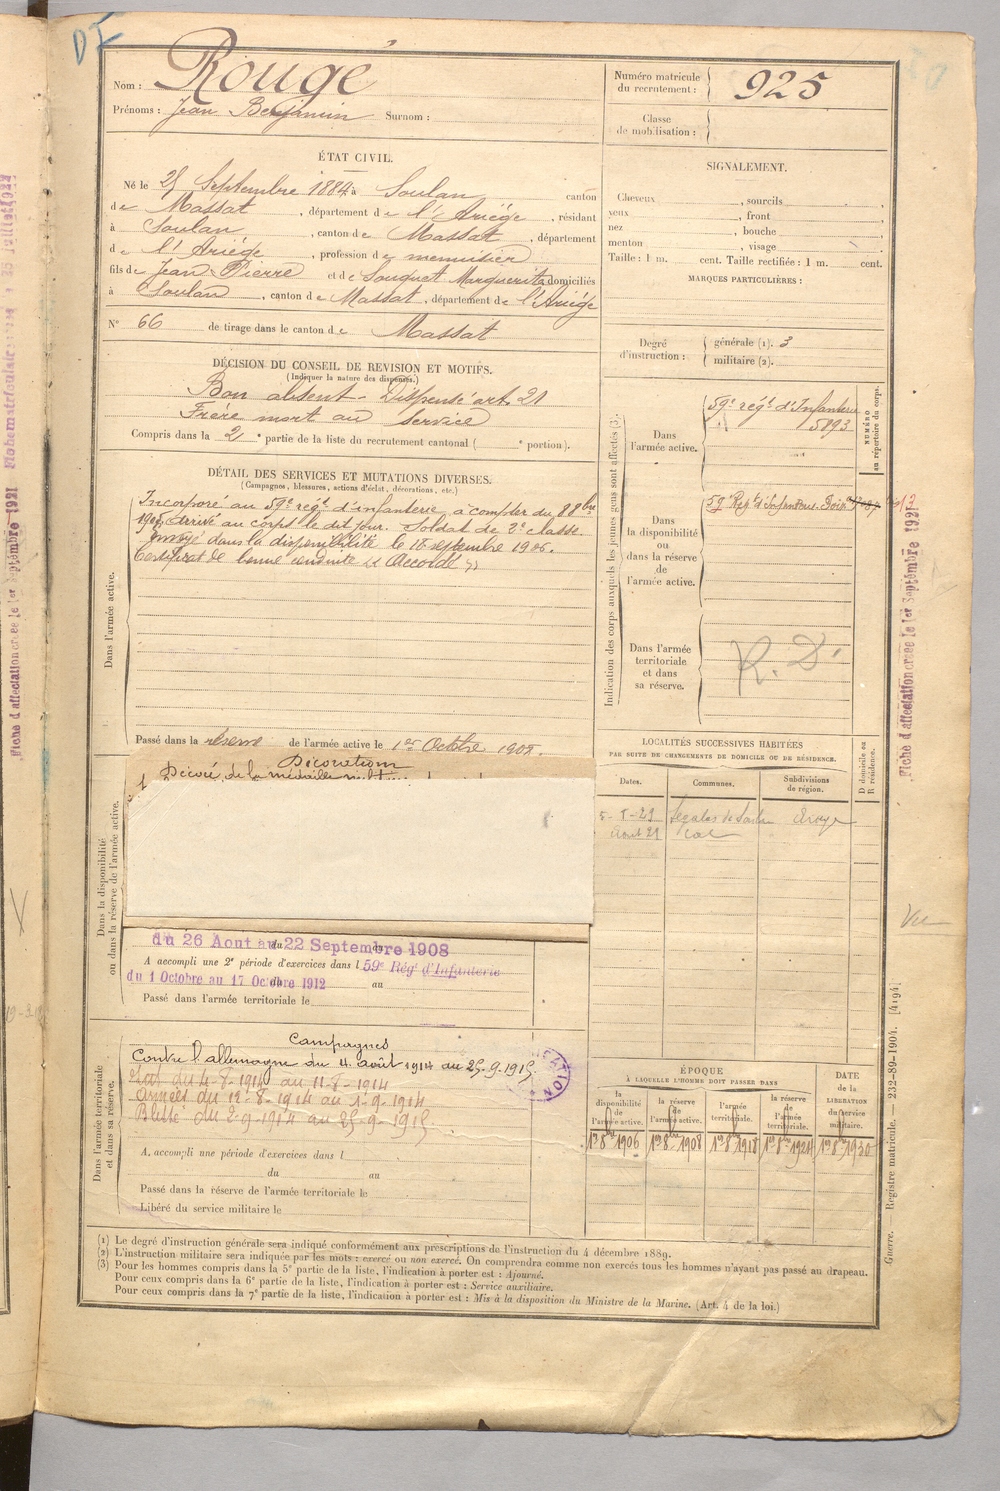 DF
Nom : Rougé
Prénoms : Jean Benjamin Surnom :
Numéro matricule du recrutement : 925
Classe de mobilisation :
ÉTAT CIVIL.
Né le 25 Septembre 1884 à Soulan canton
de Massat, département de l'Ariège, résidant
à Soulan, canton de Massat, département
de l'Ariège, profession de menuisier
fils de Jean Pierre et de Souquet Marguerite domiciliés
à Soulan, canton de Massat, département de l'Ariège
N° 66 de tirage dans le canton de Massat
SIGNALEMENT.
Cheveux , sourcils
yeux , front
nez , bouche
menton , visage
Taille : 1 m. cent. Taille rectifiée : 1 m. cent.
MARQUES PARTICULIÈRES :
Degré d'instruction : générale (1). 3
militaire (2).
DÉCISION DU CONSEIL DE REVISION ET MOTIFS.
(Indiquer la nature des dispenses.)
Bon absent - Dispensé art. 21
Frère mort au service
Compris dans la 2e partie de la liste du recrutement cantonal ( e portion).
DÉTAIL DES SERVICES ET MUTATIONS DIVERSES.
(Campagnes, blessures, actions d'éclat, décorations, etc.)
Dans l'armée active.
Incorporé au 59e régt d'infanterie à compter du 8 8bre
1905. Arrivé au corps le dit jour. Soldat de 2e classe.
Envoyé dans la disponibilité le 18 septembre 1906.
Certificat de bonne conduite "Accordé"
Passé dans la réserve de l'armée active le 1er Octobre 1908.
Indication des corps auxquels les jeunes gens sont affectés (3).
Dans l'armée active.
59e régt d'Infanterie
5893
NUMÉRO au répertoire du corps.
Dans la disponibilité ou dans la réserve de l'armée active.
59 Régt d'Infanterie
Dans l'armée territoriale et dans sa réserve.
R. D.
Dans la disponibilité ou dans la réserve de l'armée active.
Décorations
Décoré de la médaille
du 26 Aout au 22 Septembre 1908
A accompli une 2e période d'exercices dans l 59e Régt d'Infanterie
du 1 Octobre au 17 Octobre 1912 au
Passé dans l'armée territoriale le
LOCALITÉS SUCCESSIVES HABITÉES
PAR SUITE DE CHANGEMENTS DE DOMICILE OU DE RÉSIDENCE.
Dates. Communes. Subdivisions de région. D domicile ou R résidence.
Dans l'armée territoriale et dans sa réserve.
Campagnes
Contre l'allemagne du 4 août 1914 au 25.9.1915.
du 4-8-1914 au 11-8-1914
Armées du 12-8-1914 au 1-9-1914
Blessé du 2-9-1914 au 25-9-1915
A accompli une période d'exercices dans l
du au
Passé dans la réserve de l'armée territoriale le
Libéré du service militaire le
ÉPOQUE
À LAQUELLE L'HOMME DOIT PASSER DANS
la disponibilité de l'armée active.
la réserve de l'armée active.
l'armée territoriale.
la réserve de l'armée territoriale.
DATE de la LIBÉRATION du service militaire.
1er 8bre 1906
1er 8bre 1908
1er 8bre 1918
1er 8bre 1924
1er 8bre 1930
(1) Le degré d'instruction générale sera indiqué conformément aux prescriptions de l'instruction du 4 décembre 1889.
(2) L'instruction militaire sera indiquée par les mots : exercé ou non exercé. On comprendra comme non exercés tous les hommes n'ayant pas passé au drapeau.
(3) Pour les hommes compris dans la 5e partie de la liste, l'indication à porter est : Ajourné.
Pour ceux compris dans la 6e partie de la liste, l'indication à porter est : Service auxiliaire.
Pour ceux compris dans la 7e partie de la liste, l'indication à porter est : Mis à la disposition du Ministre de la Marine. (Art. 4 de la loi.)
Guerre. — Registre matricule. — 232-89-1904. [4194]
Fiche d'affectation créée le 1er Septembre 1921
Fiche d'affectation créée le 1er Septembre 1921
Vu